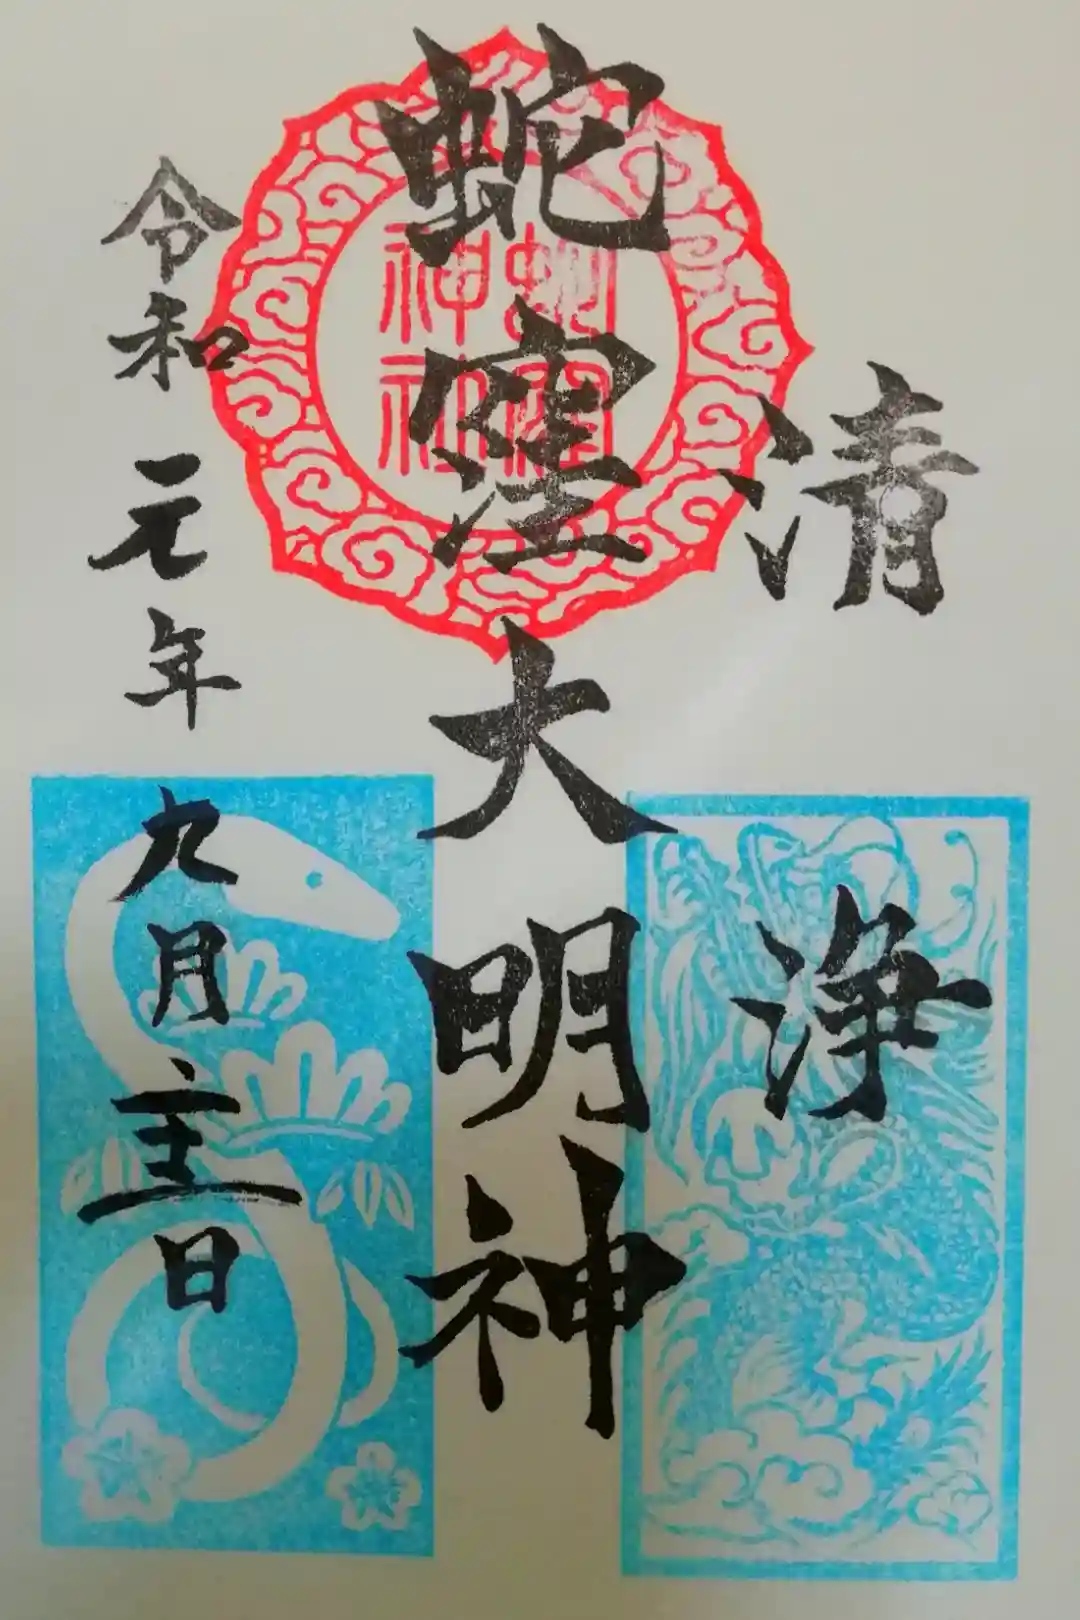 清浄
蛇窪大明神
蛇窪
神社
令和元年九月 日